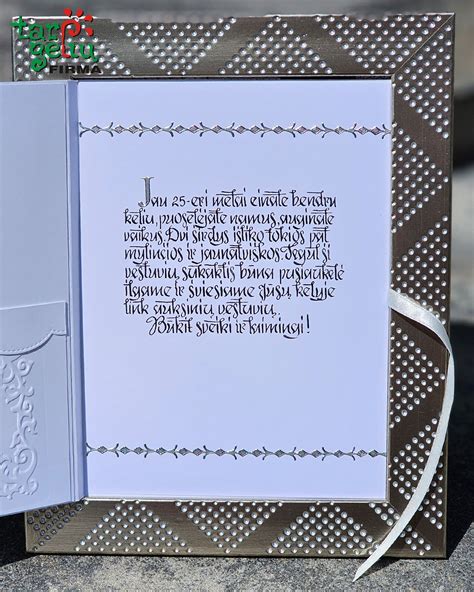 tarp
gėlių
FIRMA
Jau 25-eri metai einate bendru
keliu, puoselėjate namus, auginate
vaikus. Dvi širdys išliko tokios pat
mylinčios ir jaunatviškos. Tegul ši
vestuvių sukaktis būna pusiaukelė
ilgame ir šviesiame Jūsų kelyje
link auksinių vestuvių.
Būkit sveiki ir laimingi!